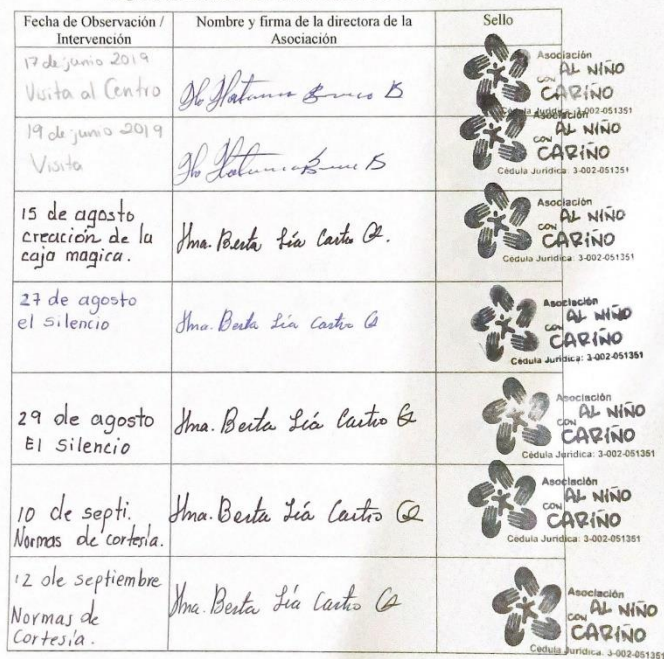 Fecha de Observación / Intervención
Nombre y firma de la directora de la Asociación
Sello
17 de junio 2019
Visita al Centro
Asociación
AL NIÑO
CON
CARIÑO
Cédula Jurídica: 3-002-051351
19 de junio 2019
Visita
Asociación
AL NIÑO
CON
CARIÑO
Cédula Jurídica: 3-002-051351
15 de agosto
creación de la
caja magica.
Hna. Berta Lía Castro
Asociación
AL NIÑO
CON
CARIÑO
Cédula Jurídica: 3-002-051351
27 de agosto
el silencio
Hna. Berta Lía Castro
Asociación
AL NIÑO
CON
CARIÑO
Cédula Jurídica: 3-002-051351
29 de agosto
El silencio
Hna. Berta Lía Castro
Asociación
AL NIÑO
CON
CARIÑO
Cédula Jurídica: 3-002-051351
10 de septi.
Normas de cortesía.
Hna. Berta Lía Castro
Asociación
AL NIÑO
CON
CARIÑO
Cédula Jurídica: 3-002-051351
12 de septiembre
Normas de
Cortesía.
Hna. Berta Lía Castro
Asociación
AL NIÑO
CON
CARIÑO
Cédula Jurídica: 3-002-051351